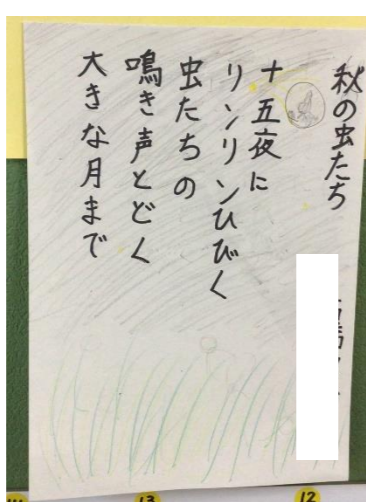 秋の虫たち
十五夜に
リンリンひびく
虫たちの
鳴き声とどく
大きな月まで
13
12